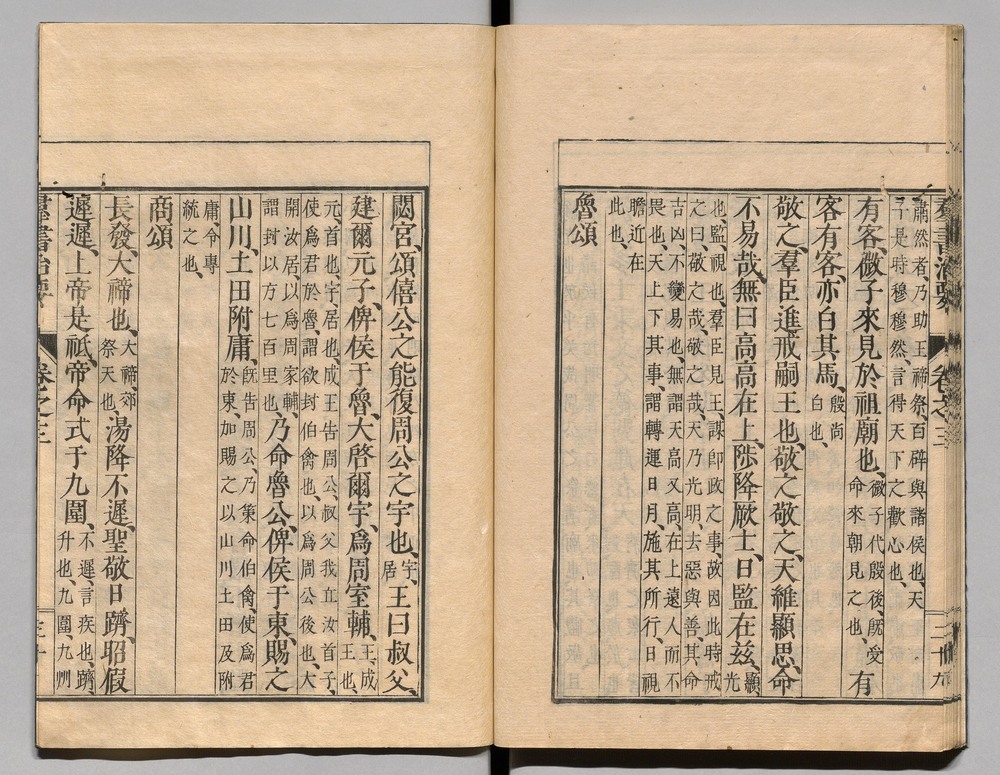 肅然者、乃助王禘祭、百辟與諸侯也、天
子是時穆穆然、言得天下之歡心也、
有客、微子來見於祖廟也、微子代殷後、既受
命來朝見之也、有
客有客、亦白其馬、殷尚
白也、
敬之、羣臣進戒嗣王也、敬之敬之、天維顯思、命
不易哉、無曰高高在上、陟降厥士、日監在茲、顯、光
也、監、視也、羣臣見王、謀即政之事、故因此時戒
之曰、敬之哉、敬之哉、天乃光明、去惡與善、其命
吉凶、不變易也、無謂天高又高、在上遠人、而不
畏也、天上下其事、謂轉運日月、施其所行、日視
瞻近在
此也、
魯頌
羣書治要
卷之三
二十九
閟宮、頌僖公之能復周公之宇也、宇、
居、王曰叔父、
建爾元子、俾侯于魯、大啓爾宇、爲周室輔、王、成
王也、
元、首也、宇、居也、成王告周公、叔父我立汝首子、
使爲君於魯、謂欲封伯禽也、以爲周公後也、大
開汝居、以爲周家輔、
謂封以方七百里也、乃命魯公、俾侯于東、賜之
山川、土田附庸、既告周公、乃策命伯禽、使爲君
於東、加賜之以山川土田及附
庸、令專
統之也、
商頌
長發、大禘也、大禘、郊
祭天也、湯降不遲、聖敬日躋、昭假
遲遲、上帝是祗、帝命式于九圍、不遲、言疾也、躋、
升也、九圍、九州
羣書治要
卷之三
三十